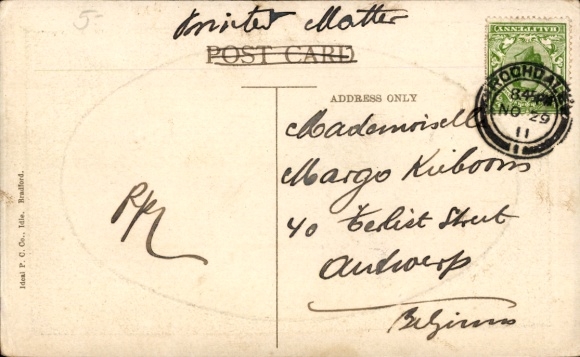 5-
Printed Matter
POST CARD
HALFPENNY
ROCHDALE
8 45 PM
NO 29
11
ADDRESS ONLY
Mademoiselle
Margo Kiebooms
40 Terlist Street
Antwerp
Belgium
Ideal P. C. Co., Idle, Bradford.